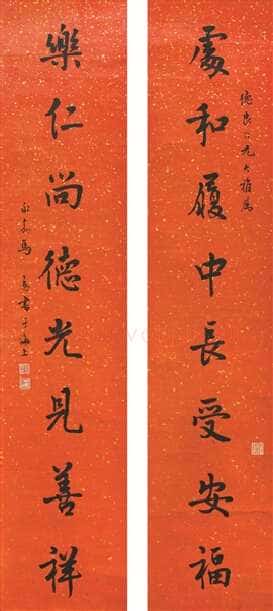 德良仁兄大雅屬
處和履中長受安福
樂仁尚德光見善祥
永嘉馬公愚書于海上